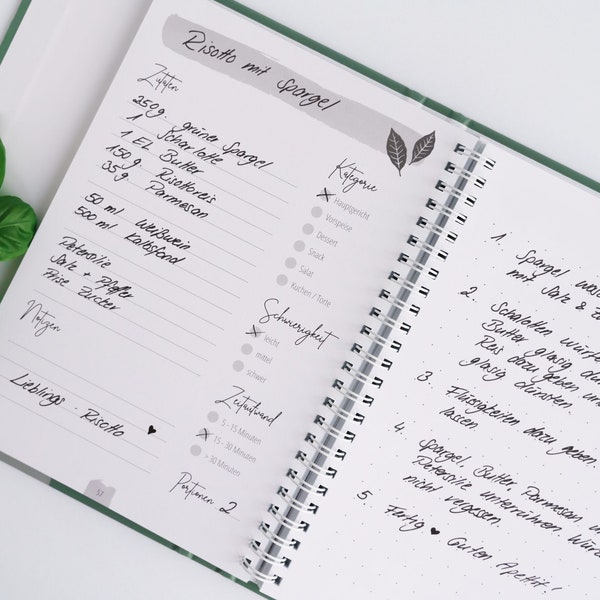 Risotto mit Spargel
Zutaten
250g. grüner Spargel
1 Scharlotte
1 EL Butter
150g. Risottoreis
35g. Parmesan
50 ml Weißwein
500 ml Kalbsfond
Petersilie
Salz + Pfeffer
Prise Zucker
Notizen
Lieblings-Risotto ♥
57
Kategorie
Hauptgericht
Vorspeise
Dessert
Snack
Salat
Kuchen / Torte
Schwierigkeit
leicht
mittel
schwer
Zeitaufwand
5 - 15 Minuten
15 - 30 Minuten
> 30 Minuten
Portionen 2
1. Spargel
mit Salz & Z
2. Schalotten
Butter glasig
Reis dazu geben
glasig dünsten.
3. Flüssigkeiten dazu geben.
lassen
4. Spargel, Butter, Parmesan
Petersilie unterrühren.
nicht vergessen.
5. Fertig ♥ Guten Appetit!